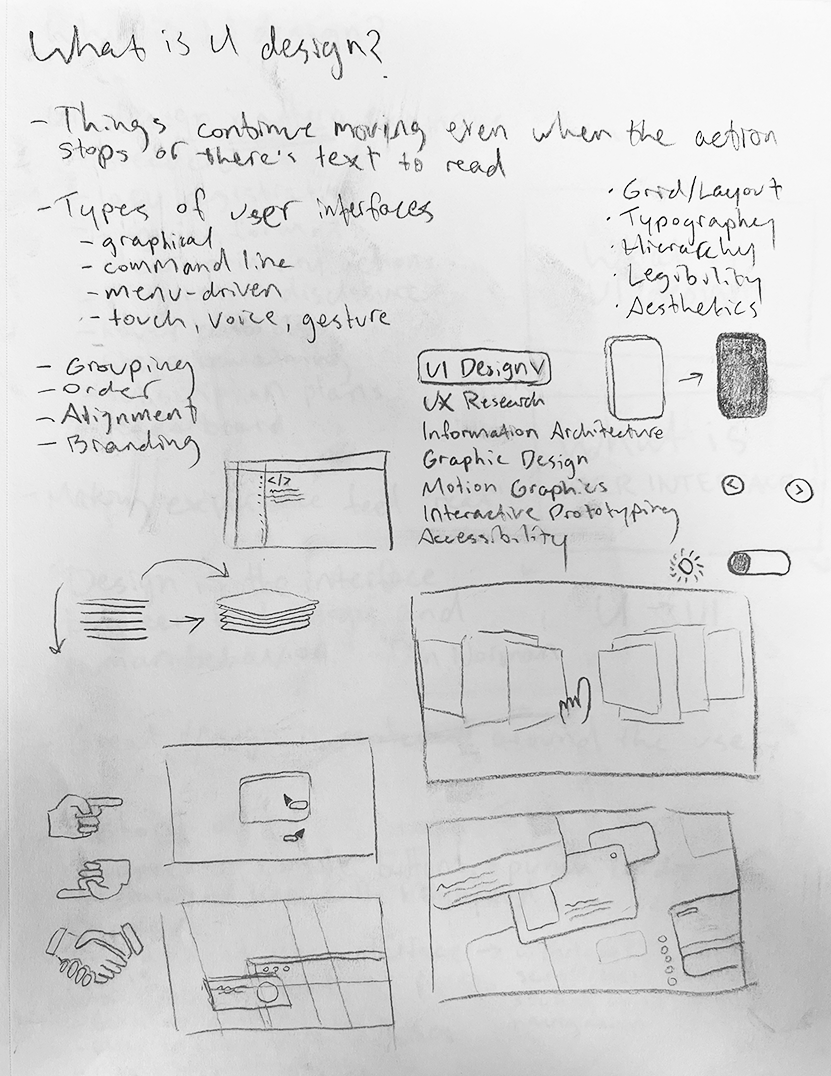 What is UI design?
- Things continue moving even when the action
stops or there's text to read
- Types of user interfaces
- graphical
- command line
- menu-driven
- touch, voice, gesture
· Grid/Layout
· Typography
· Hierarchy
· Legibility
· Aesthetics
- Grouping
- Order
- Alignment
- Branding
UI Design
UX Research
Information Architecture
Graphic Design
Motion Graphics
Interactive Prototyping
Accessibility
</>